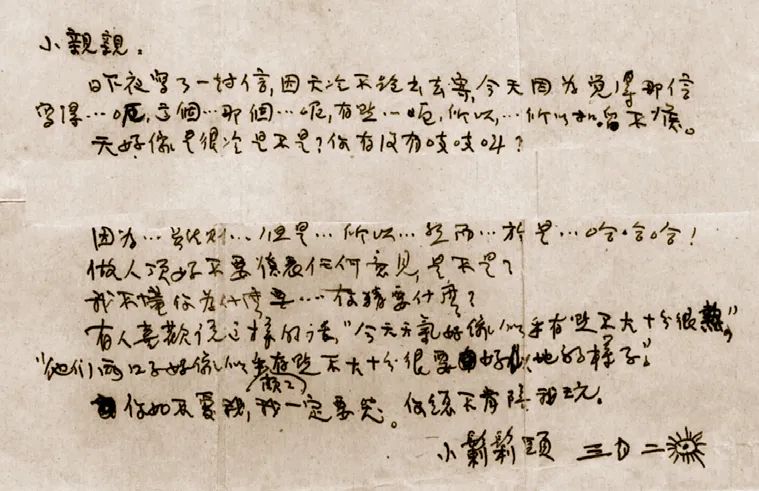 小親親。
昨夜寫了一封信,因天冷不能出去寄,今天因为覚得那信
寫得…呃,這個…那個…呃,有些…呃,所以,…所以扣留不發。
天好像是很冷是不是?你有没有吱吱叫?
因为…雖然…但是…所以…然而…於是…哈哈哈!
做人頂好不要發表任何意見,是不是?
我不懂你为什麼要…你猜要什麼?
有人喜歡说這样的话,“今天天氣好像似乎有些不大十分很熱”,
“他们兩口子好像似乎有些不大十分很要好似地的樣子”。
你如不愛我,我一定要哭。你總不肯陪我玩。
小鬍鬍頭 三月二